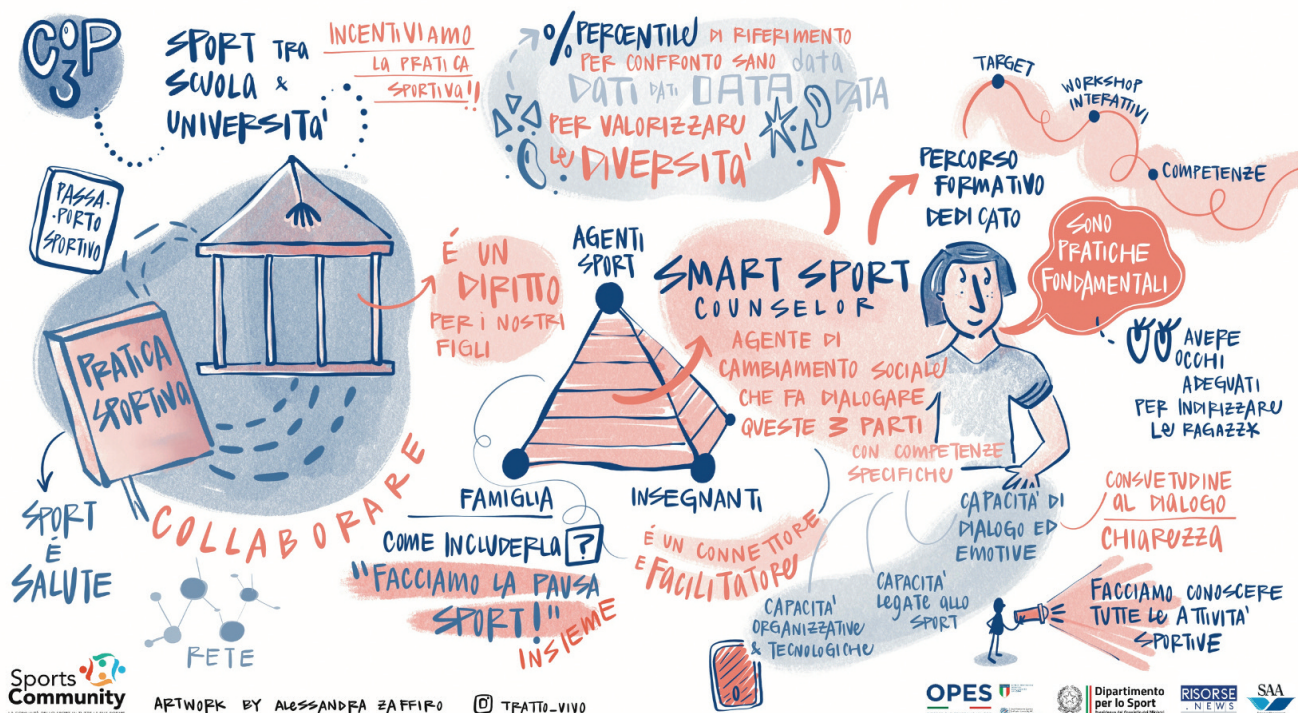 CoP
3
SPORT TRA
SCUOLA &
UNIVERSITA'
INCENTIVIAMO
LA PRATICA
SPORTIVA!!
% PERCENTILE DI RIFERIMENTO
PER CONFRONTO SANO data
DATI DATI DATA DATA
PER VALORIZZARE
LE DIVERSITA'
TARGET
WORKSHOP
INTERATTIVI
COMPETENZE
PERCORSO
FORMATIVO
DEDICATO
PASSA-
-PORTO
SPORTIVO
PRATICA
SPORTIVA
É UN
DIRITTO
PER I NOSTRI
FIGLI
AGENTI
SPORT
FAMIGLIA
INSEGNANTI
SMART SPORT
COUNSELOR
AGENTE DI
CAMBIAMENTO SOCIALE
CHE FA DIALOGARE
QUESTE 3 PARTI
CON COMPETENZE
SPECIFICHE
SONO
PRATICHE
FONDAMENTALI
AVERE
OCCHI
ADEGUATI
PER INDIRIZZARE
LE RAGAZZ*
SPORT
É
SALUTE
COLLABORARE
RETE
COME INCLUDERLA ?
"FACCIAMO LA PAUSA
SPORT!"
INSIEME
É UN CONNETTORE
E FACILITATORE
CAPACITA'
ORGANIZZATIVE
& TECNOLOGICHE
CAPACITA'
LEGATE ALLO
SPORT
CAPACITA' DI
DIALOGO ED
EMOTIVE
CONSUETUDINE
AL DIALOGO
CHIAREZZA
FACCIAMO CONOSCERE
TUTTE LE ATTIVITA'
SPORTIVE
Sports
Community
ARTWORK BY ALESSANDRA ZAFFIRO TRATTO_VIVO
OPES
Dipartimento
per lo Sport
RISORSE
.NEWS
SAA